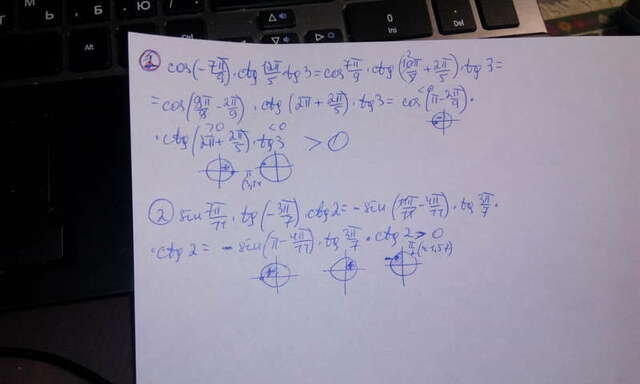 Ins
0
Del
Ю
① cos(-7π/9)·ctg 12π/5·tg3=cos 7π/9·ctg(10π/5+2π/5)·tg3=
=cos(9π/9-2π/9)·ctg(2π+2π/5)·tg3=cos(π-2π/9)·
<0
>0 <0
·ctg(2π+2π/5)·tg3 >0
② sin 7π/11·tg(-3π/7)·ctg2=-sin(11π/11-4π/11)·tg 3π/7·
·ctg2=-sin(π-4π/11)·tg 3π/7·ctg2>0